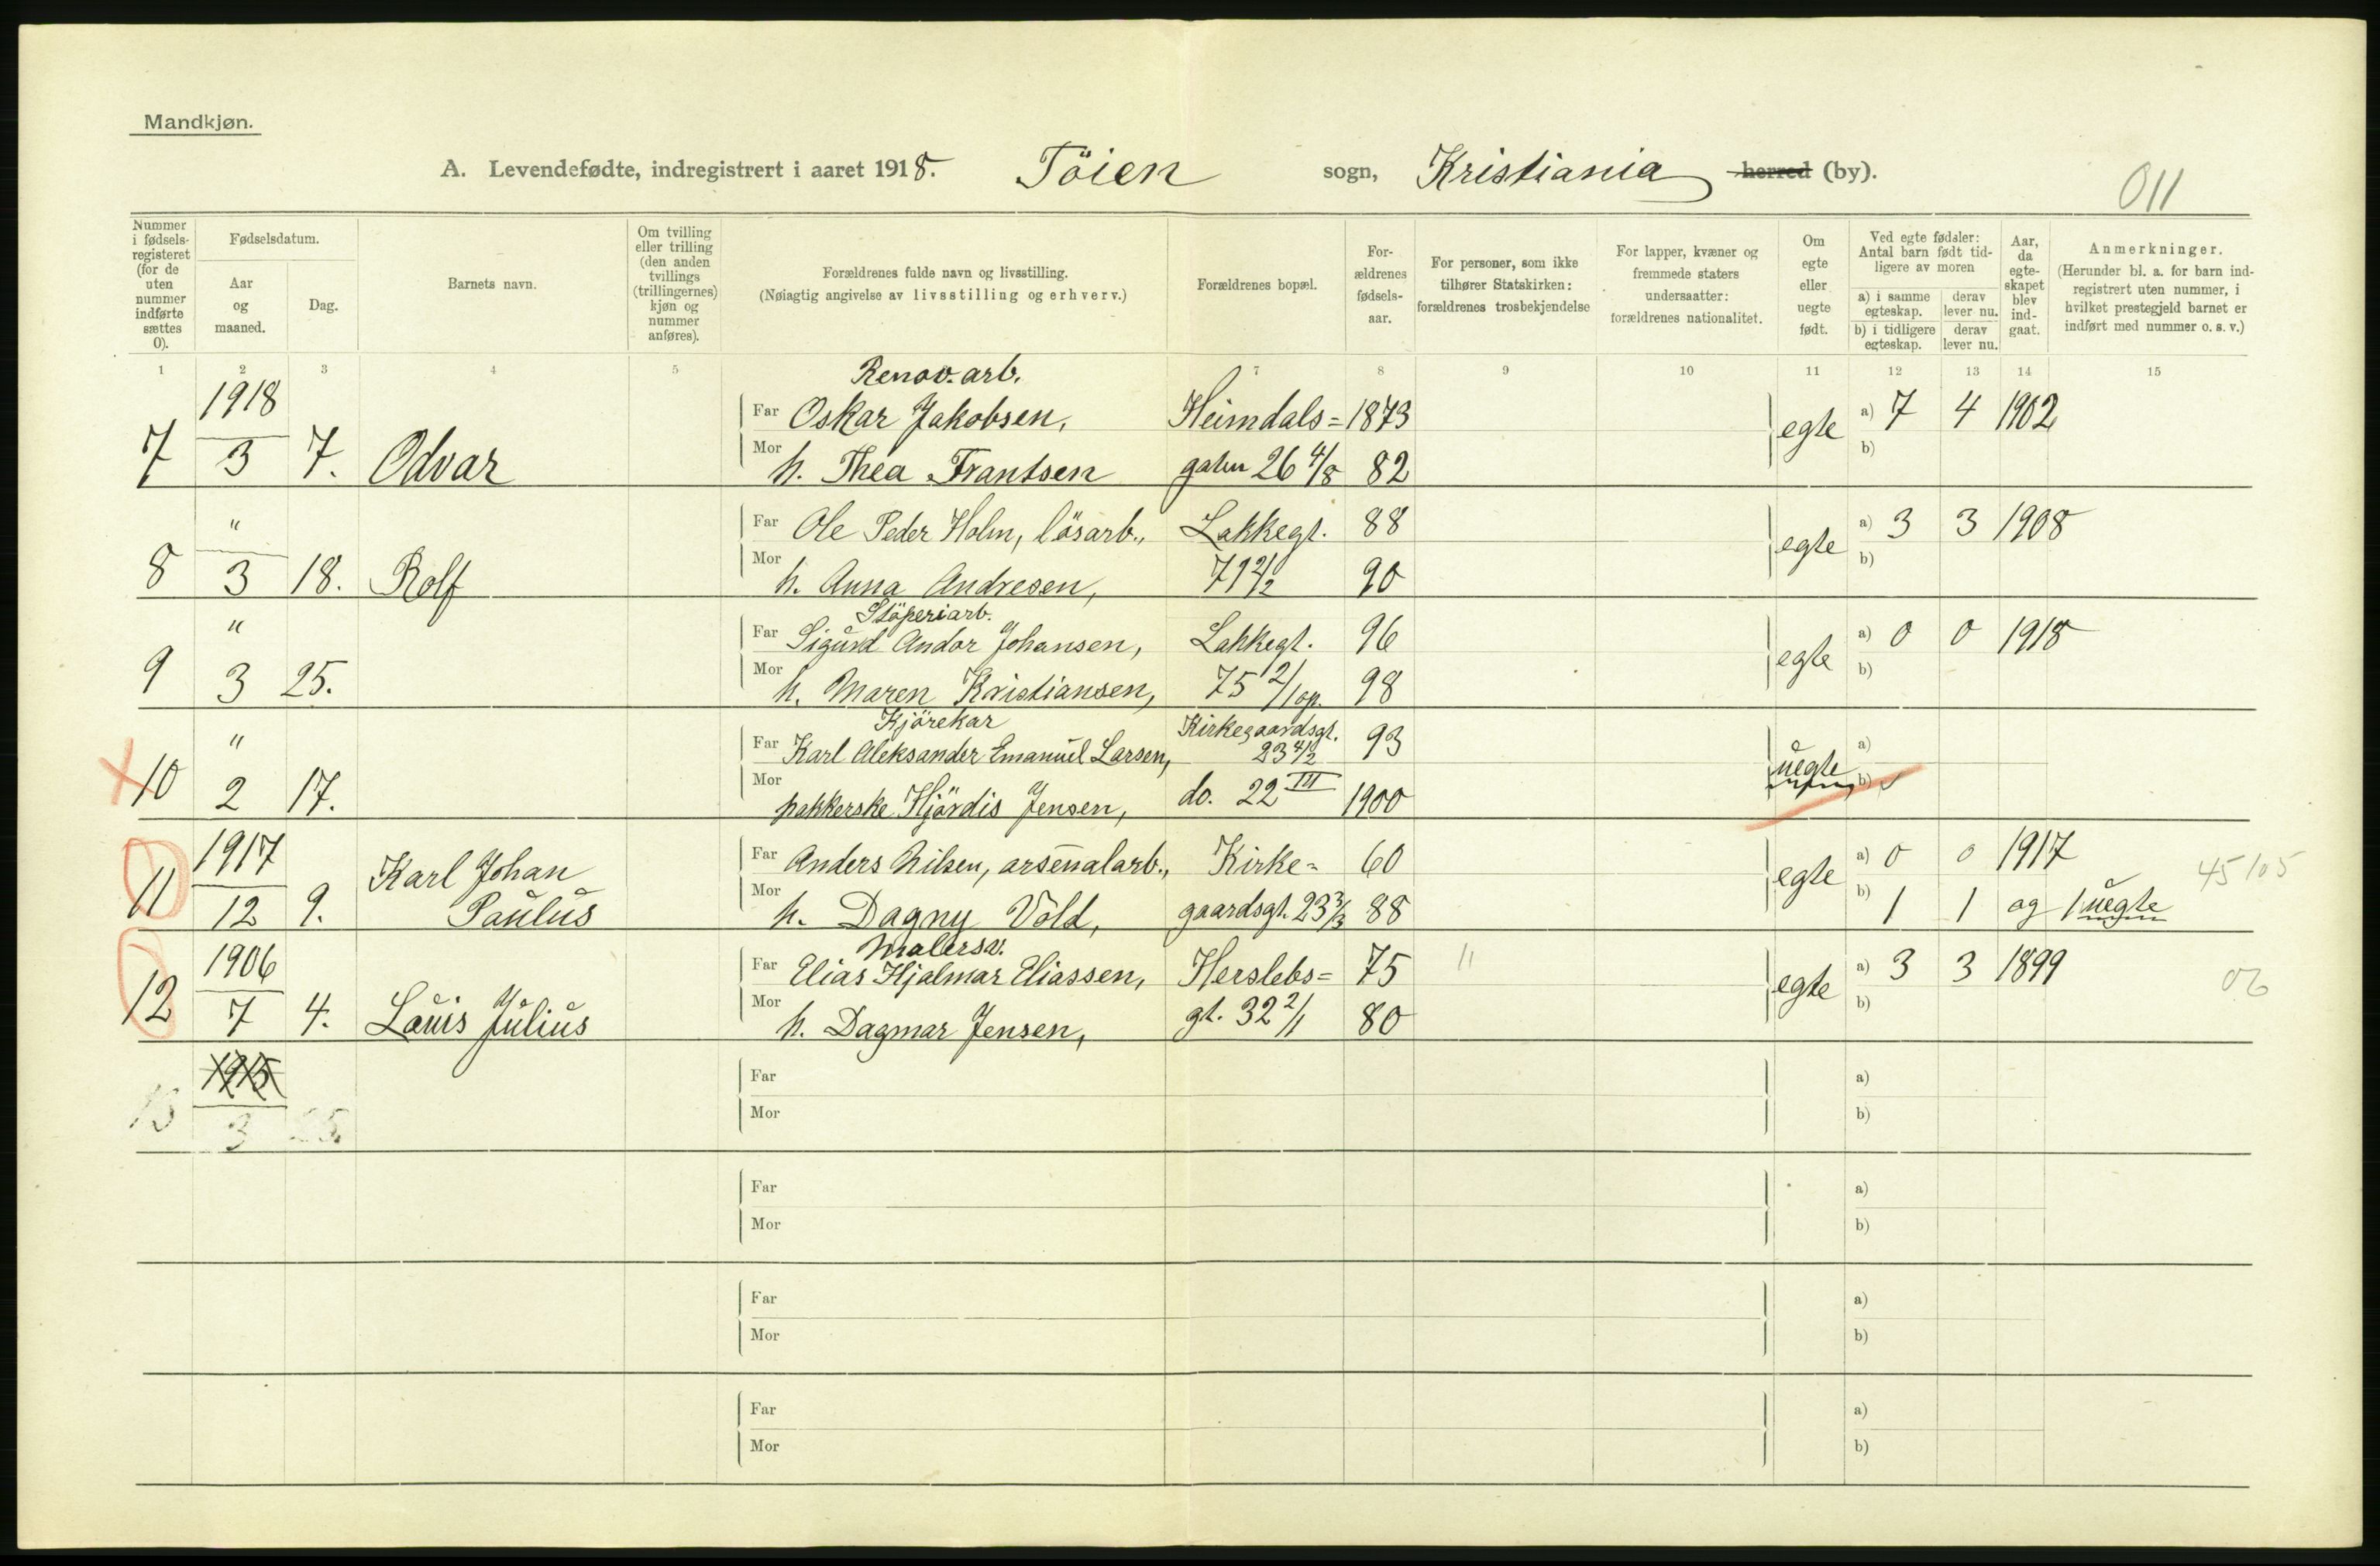 Mandkjøn.
A. Levendefødte, indregistrert i aaret 1918. Töien sogn, Kristiania herred (by).
011
Nummer i fødsels-registeret (for de uten nummer indførte sættes 0).
Fødselsdatum.
Aar og maaned.
Dag.
Barnets navn.
Om tvilling eller trilling (den anden tvillings (trillingernes) kjøn og nummer anføres).
Forældrenes fulde navn og livsstilling.
(Nøiagtig angivelse av livsstilling og erhverv.)
Forældrenes bopæl.
For-ældrenes fødsels-aar.
For personer, som ikke tilhører Statskirken: forældrenes trosbekjendelse
For lapper, kvæner og fremmede staters undersaatter: forældrenes nationalitet.
Om egte eller uegte født.
Ved egte fødsler: Antal barn født tid-ligere av moren
a) i samme egteskap.
derav lever nu.
b) i tidligere egteskap.
derav lever nu.
Aar, da egte-skapet blev ind-gaat.
Anmerkninger.
(Herunder bl. a. for barn ind-registrert uten nummer, i hvilket prestegjeld barnet er indført med nummer o. s. v.)
1 2 3 4 5 7 8 9 10 11 12 13 14 15
Renov. arb.
1918
Far Oskar Jakobsen, Heimdals= 1873 egte a) 7 4 1902
7 3 7. Odvar Mor h. Thea Frantsen gaten 26 4/8 82 b)
" Far Ole Peder Holm, lösarb., Lakkegt. 88 egte a) 3 3 1908
8 3 18. Rolf Mor h. Anna Andresen, 71 2/2 90 b)
Stöperiarb.
" Far Sigurd Andor Johansen, Lakkegt. 96 egte a) 0 0 1918
9 3 25. Mor h. Maren Kristiansen, 75 2/1 op. 98 b)
Kjörekar
" Far Karl Aleksander Emanuel Larsen, Kirkegaardsgt. 23 4/2 93 uegte a)
10 2 17. Mor pakkerske Hjördis Jensen, do. 22 III 1900 b)
1917 Karl Johan Far Anders Nilsen, arsenalarb., Kirke= 60 egte a) 0 0 1917 45/105
11 12 9. Paulus Mor h. Dagny Vold, gaardsgt. 23 3/3 88 b) 1 1 og 1 uegte
Malersv.
1906 Far Elias Hjalmar Eliassen, Herslebs= 75 " egte a) 3 3 1899 06
12 7 4. Louis Julius Mor h. Dagmar Jensen, gt. 32 2/1 80 b)
1915 Far a)
13 3 25. Mor b)
Far a)
Mor b)
Far a)
Mor b)
Far a)
Mor b)